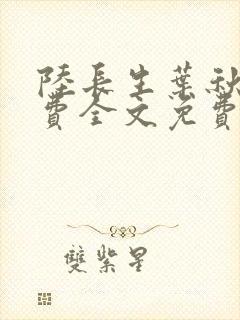 陸長生葉秋
費全文免費
雙紫星